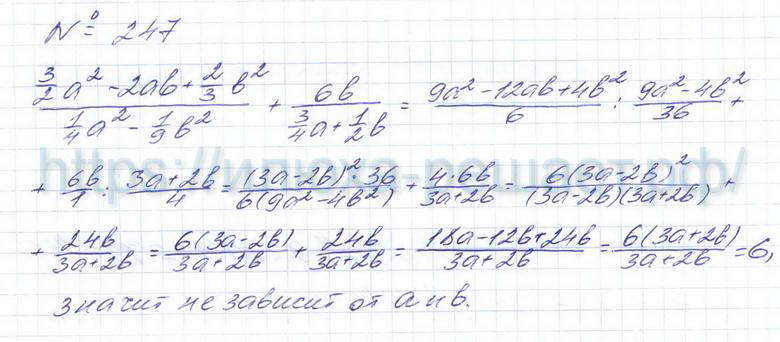 № 247
(3/2 a² - 2ab + 2/3 b²)/(1/4 a² - 1/9 b²) + 6b/(3/4 a + 1/2 b) = (9a² - 12ab + 4b²)/6 : (9a² - 4b²)/36 +
+ 6b/1 : (3a + 2b)/4 = ((3a - 2b)² · 36)/(6(9a² - 4b²)) + (4 · 6b)/(3a + 2b) = (6(3a - 2b)²)/((3a - 2b)(3a + 2b)) +
+ 24b/(3a + 2b) = (6(3a - 2b))/(3a + 2b) + 24b/(3a + 2b) = (18a - 12b + 24b)/(3a + 2b) = (6(3a + 2b))/(3a + 2b) = 6,
значит не зависит от a и b.
https://илюха-решает.рф/